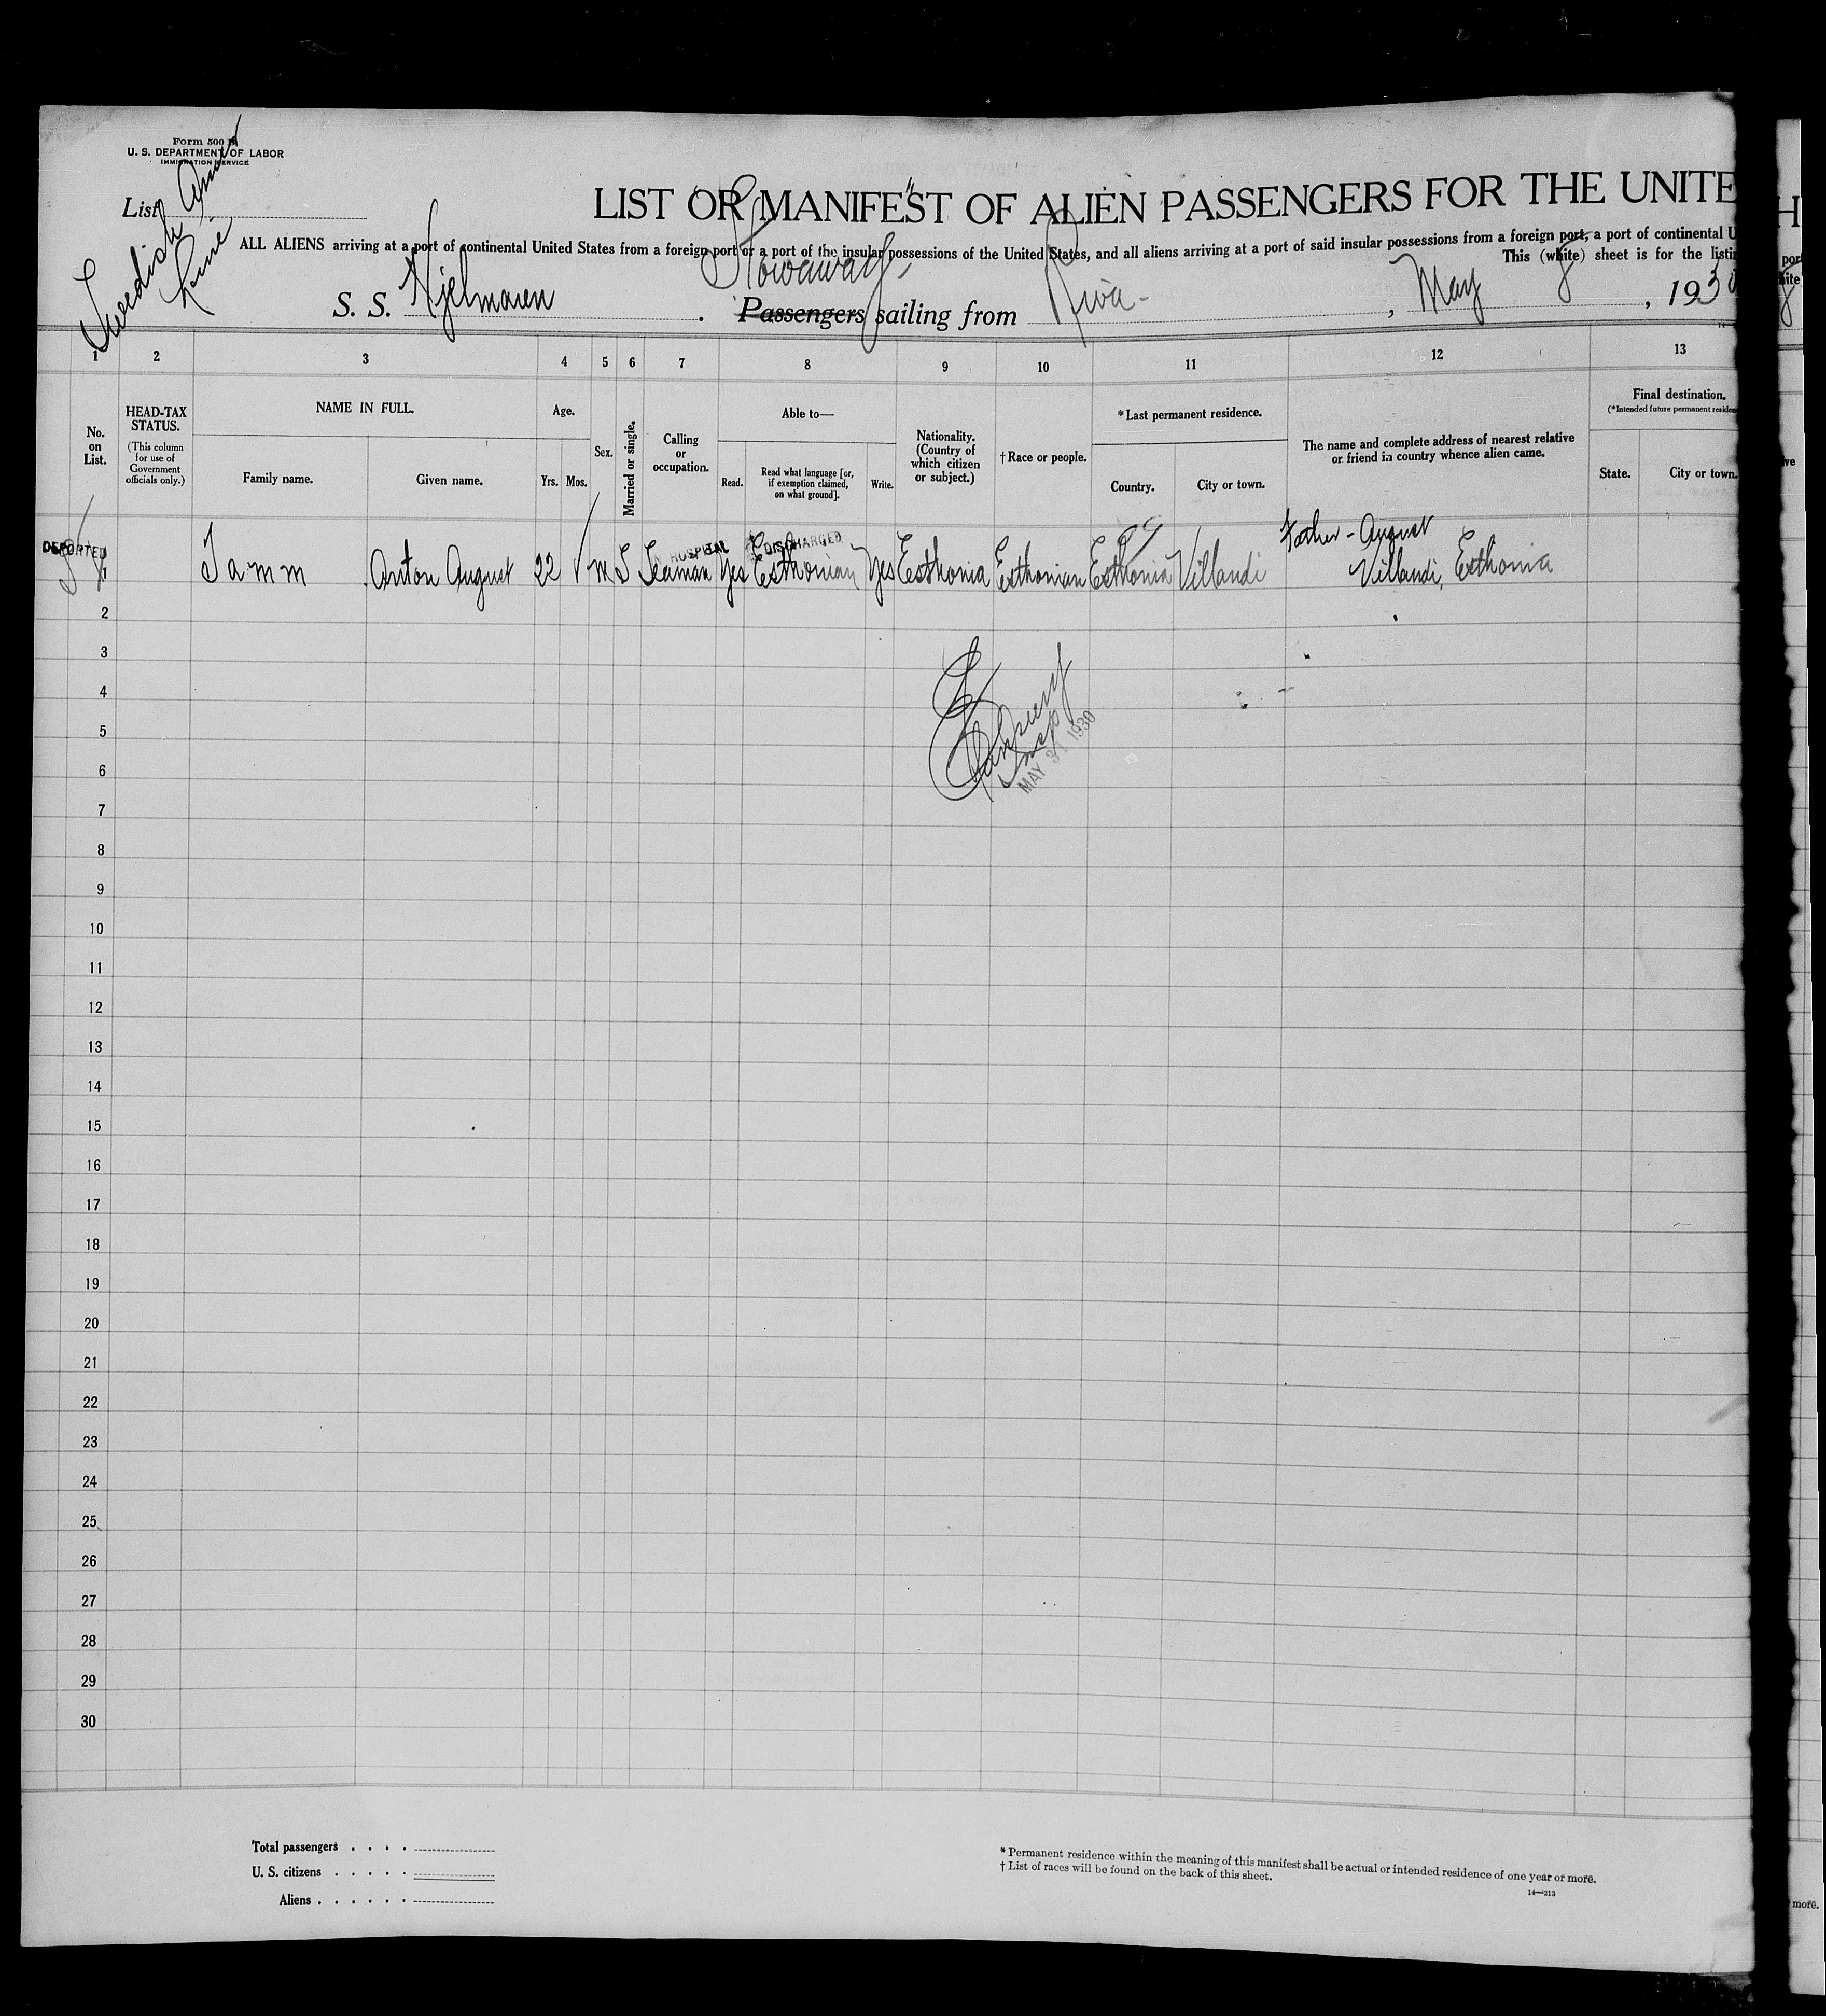 Form 500 B
U. S. DEPARTMENT OF LABOR
IMMIGRATION SERVICE
List
Swedish Amer
Line
LIST OR MANIFEST OF ALIEN PASSENGERS FOR THE UNITE
ALL ALIENS arriving at a port of continental United States from a foreign port or a port of the insular possessions of the United States, and all aliens arriving at a port of said insular possessions from a foreign port, a port of continental U
This (white) sheet is for the listi
Stowaway
S. S. Hjelmaren . Passengers sailing from Riva , May 8 , 1930
1 2 3 4 5 6 7 8 9 10 11 12 13
No. on List.
HEAD-TAX STATUS.
(This column for use of Government officials only.)
NAME IN FULL.
Family name.
Given name.
Age.
Yrs. Mos.
Sex.
Married or single.
Calling or occupation.
Able to—
Read.
Read what language [or, if exemption claimed, on what ground].
Write.
Nationality. (Country of which citizen or subject.)
†Race or people.
*Last permanent residence.
Country.
City or town.
The name and complete address of nearest relative or friend in country whence alien came.
Final destination.
(*Intended future permanent residen
State.
City or town.
DEPORTED
HOSPITAL DISCHARGED
Father - August
1 Tamm Anton August 22 m S Seaman Yes Esthonian Yes Esthonia Esthonian Esthonia Villandi Villandi, Esthonia
2
3
4
5
MAY 31 1930
6
7
8
9
10
11
12
13
14
15
16
17
18
19
20
21
22
23
24
25
26
27
28
29
30
Total passengers . . . .
U. S. citizens . . . . .
Aliens . . . . . .
* Permanent residence within the meaning of this manifest shall be actual or intended residence of one year or more.
† List of races will be found on the back of this sheet.
14—213
more.